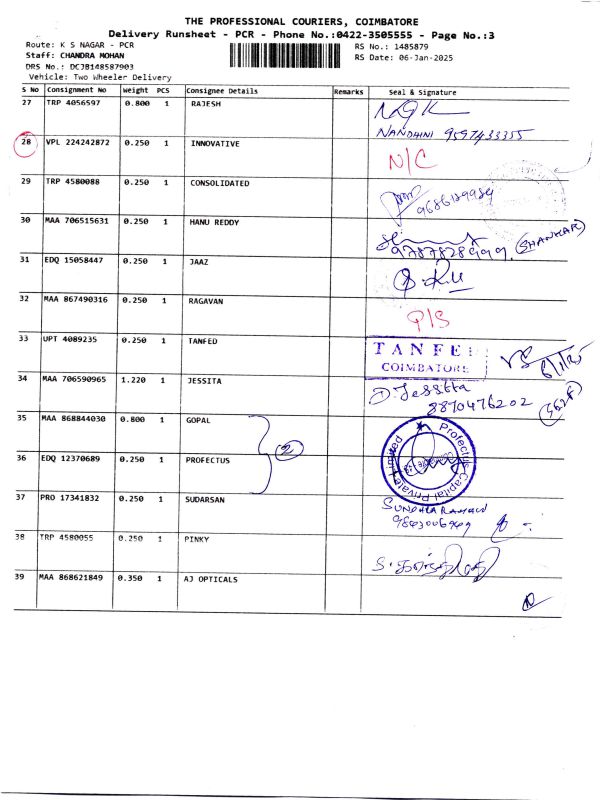 THE PROFESSIONAL COURIERS, COIMBATORE
Delivery Runsheet - PCR - Phone No.:0422-3505555 - Page No.:3
Route: K S NAGAR - PCR RS No.: 1485879
Staff: CHANDRA MOHAN RS Date: 06-Jan-2025
DRS No.: DCJB148587903
Vehicle: Two Wheeler Delivery
S No Consignment No Weight PCS Consignee Details Remarks Seal & Signature
27 TRP 4056597 0.800 1 RAJESH
NANDHINI 9597433355
28 VPL 224242872 0.250 1 INNOVATIVE N/C
29 TRP 4580088 0.250 1 CONSOLIDATED
9686129984
30 MAA 706515631 0.250 1 HANU REDDY
9787828999 (SHANKAR)
31 EDQ 15058447 0.250 1 JAAZ
32 MAA 867490316 0.250 1 RAGAVAN P/S
33 UPT 4089235 0.250 1 TANFED TANFE
COIMBATORE 6/1/25
34 MAA 706590965 1.220 1 JESSITA D. Jessita
8870476202
35 MAA 868844030 0.800 1 GOPAL
2
36 EDQ 12370689 0.250 1 PROFECTUS Profectus Capital Private Limited
37 PRO 17341832 0.250 1 SUDARSAN SUNDHARAMAN
38 TRP 4580055 0.250 1 PINKY
39 MAA 868621849 0.350 1 AJ OPTICALS